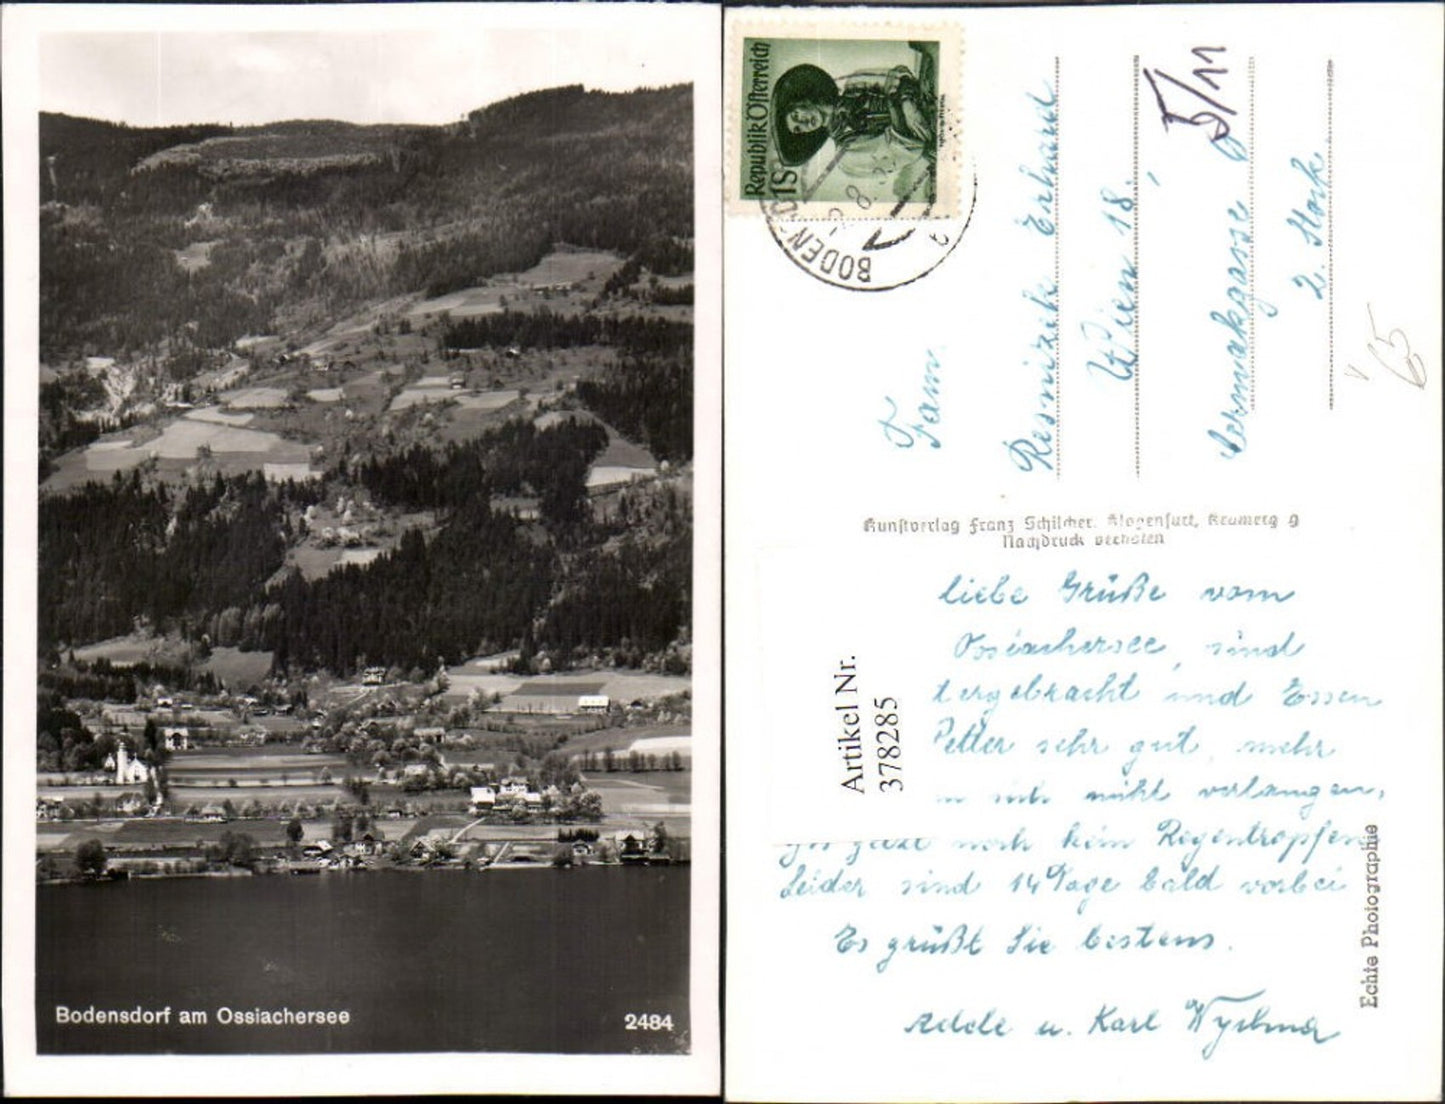 Bodensdorf am Ossiachersee
2484
Republik Österreich
1 S
BODEN
8.
Fam.
Resnizek Erhard
Wien 18.,
5/11
Vermakgasse 6
2. Stock
65
Kunstverlag Franz Schilcher. Klagenfurt, Kramerg 9
Nachdruck verboten
Artikel Nr.
378285
liebe Grüße vom
Ossiachersee, sind
tergebracht und Essen
Petter sehr gut, mehr
n sich nicht verlangen,
noch kein Regentropfen
Leider sind 14 Tage bald vorbei
Es grüßt Sie bestens.
Adele u. Karl
Echte Photographie